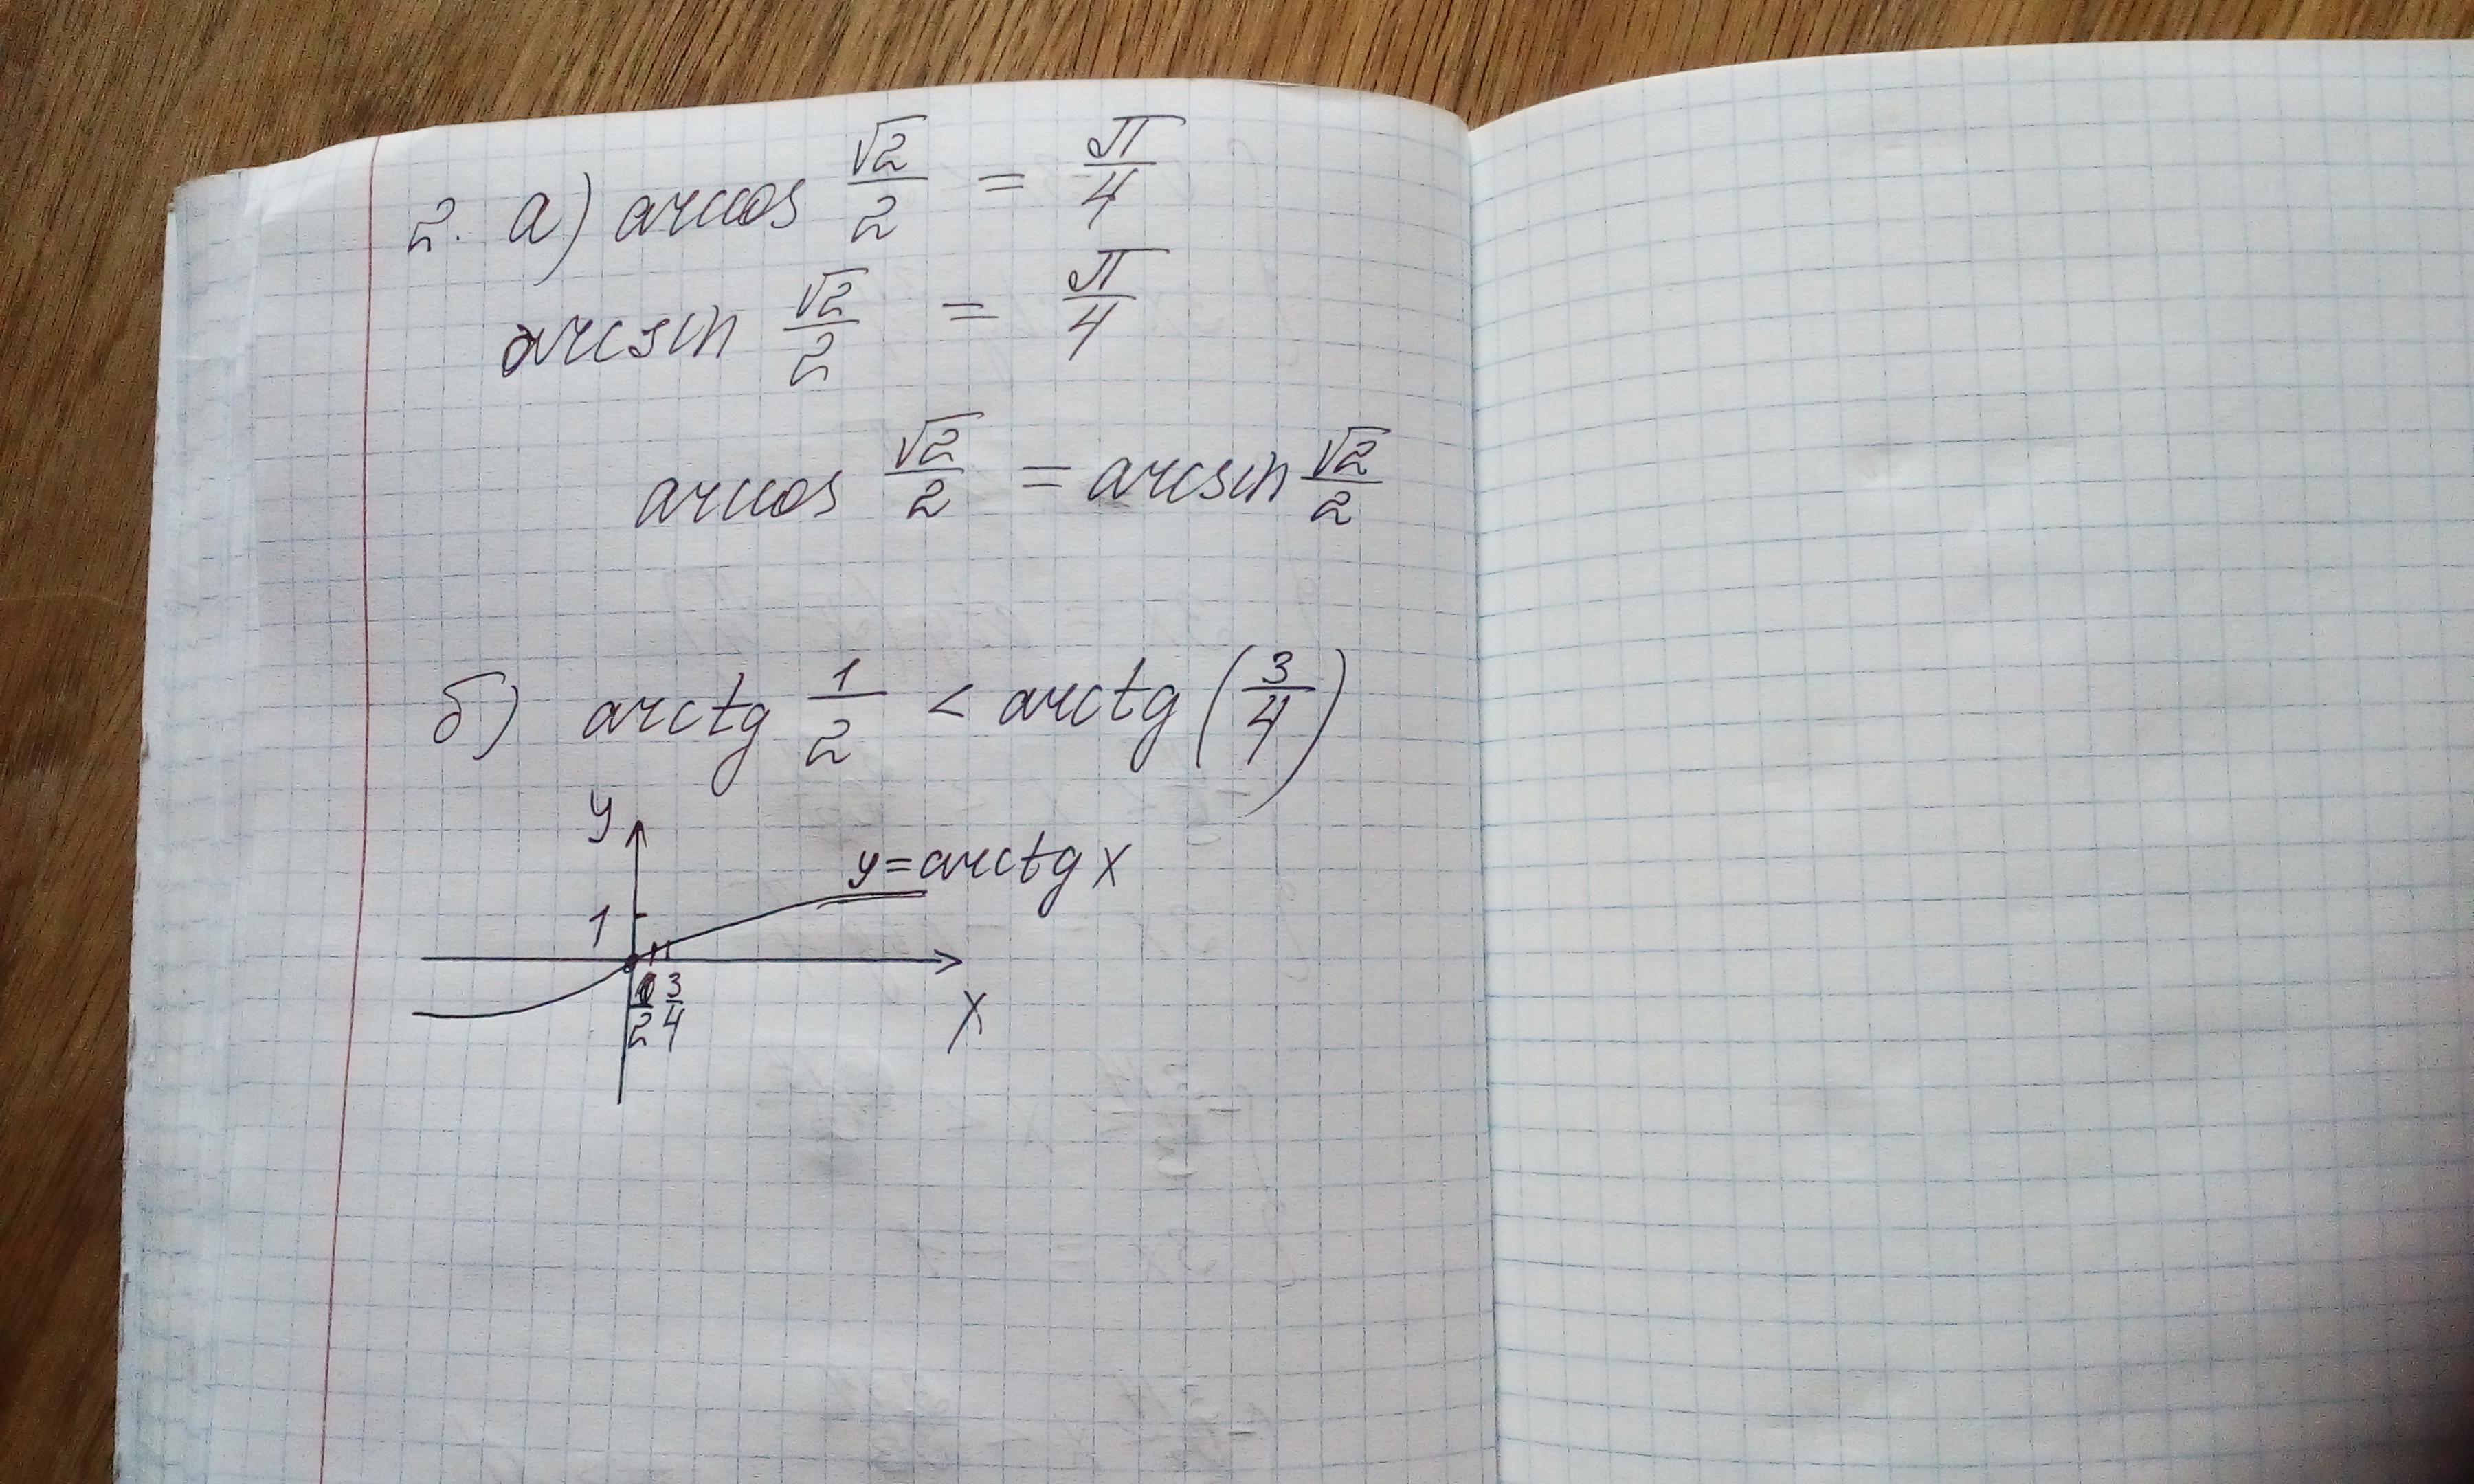 2. а) arccos √2/2 = π/4
arcsin √2/2 = π/4
arccos √2/2 = arcsin √2/2
б) arctg 1/2 < arctg (3/4)
y
y=arctg x
1
1/2 3/4
x